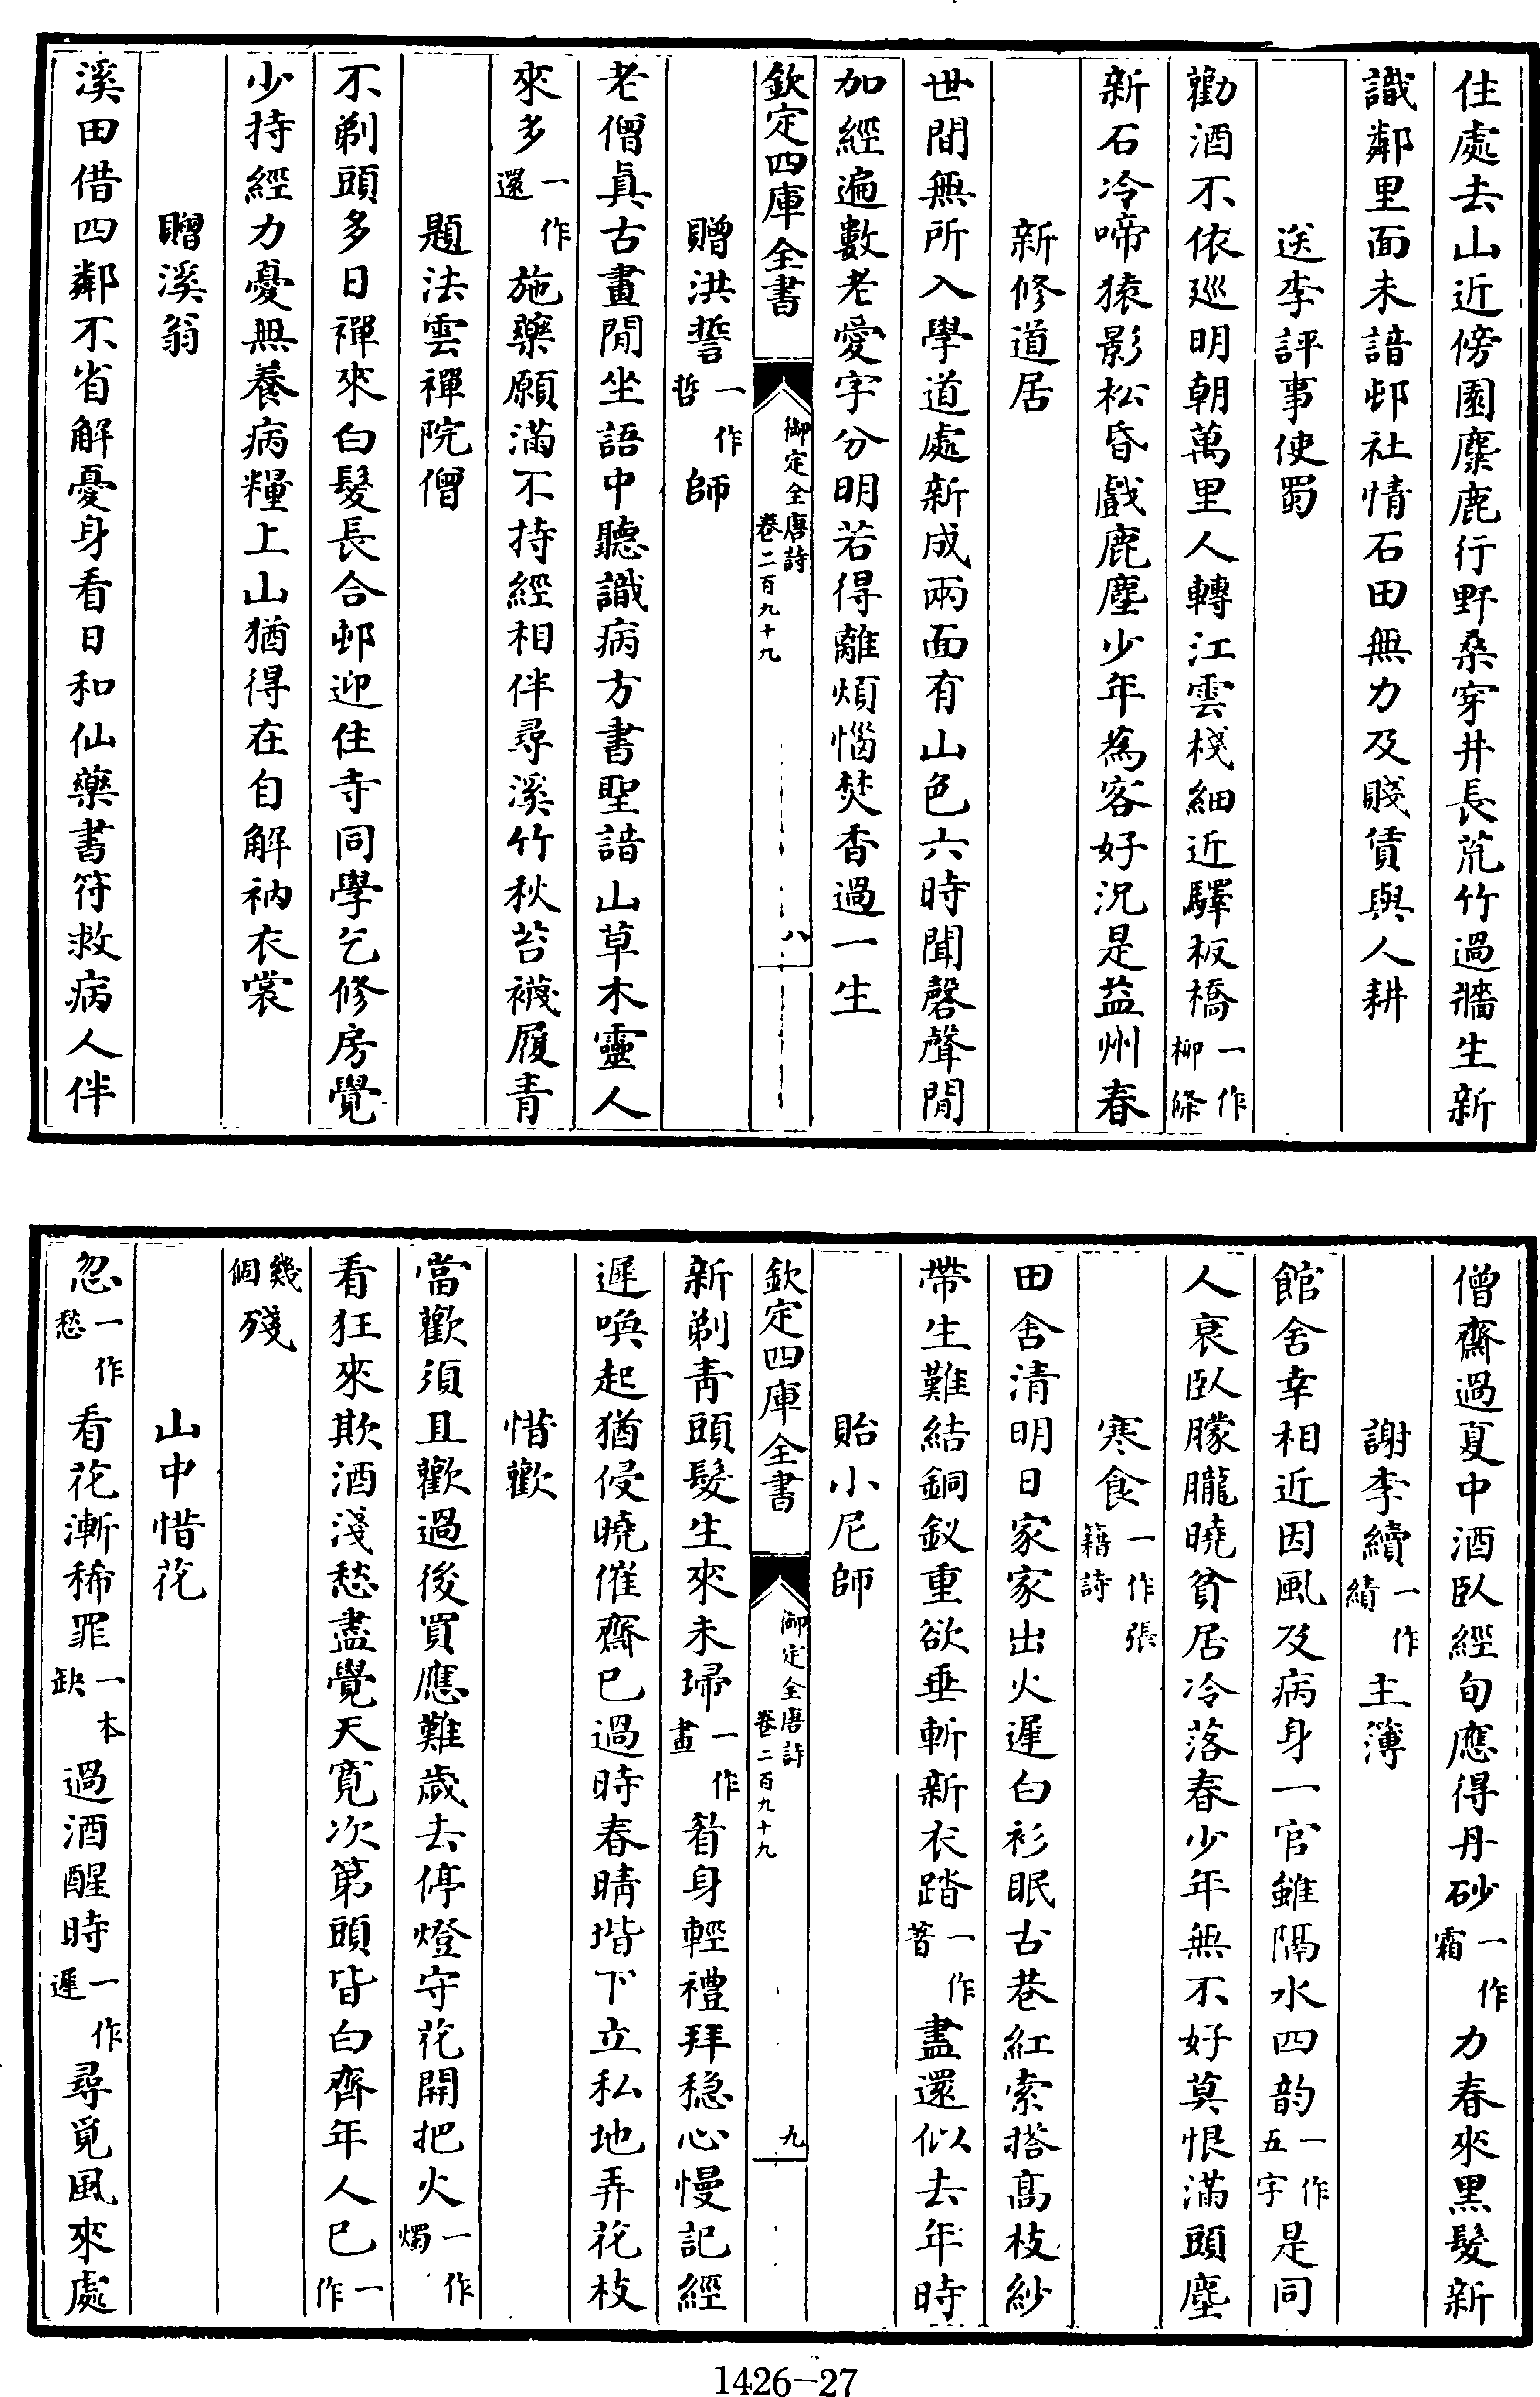 住處去山近傍園麋鹿行野桑穿井長荒竹過牆生新
識鄰里面未諳邨社情石田無力及賤賃與人耕
送李評事使蜀
勸酒不依巡明朝萬里人轉江雲棧細近驛板橋一作柳條
新石冷啼猿影松昏戲鹿塵少年為客好況是益州春
新修道居
世間無所入學道處新成兩面有山色六時聞磬聲閒
加經遍數老愛字分明若得離煩惱焚香過一生
欽定四庫全書 御定全唐詩卷二百九十九 八
贈洪誓一作哲師
老僧真古畫閒坐語中聽識病方書聖諳山草木靈人
來多一作還施藥願滿不持經相伴尋溪竹秋苔襪履青
題法雲禪院僧
不剃頭多日禪來白髮長合邨迎住寺同學乞修房覺
少持經力憂無養病糧上山猶得在自解衲衣裳
贈溪翁
溪田借四鄰不省解憂身看日和仙藥書符救病人伴
僧齋過夏中酒臥經旬應得丹砂一作霜力春來黑髮新
謝李續一作績主簿
館舍幸相近因風及病身一官雖隔水四韵一作五字是同
人衰臥朦朧曉貧居冷落春少年無不好莫恨滿頭塵
寒食一作張籍詩
田舍清明日家家出火遲白衫眠古巷紅索搭高枝紗
帶生難結銅釵重欲垂斬新衣踏一作著盡還似去年時
貽小尼師
欽定四庫全書 御定全唐詩卷二百九十九 九
新剃青頭髮生來未掃一作畫眉身輕禮拜穩心慢記經
遲喚起猶侵曉催齋已過時春晴堦下立私地弄花枝
惜歡
當歡須且歡過後買應難歲去停燈守花開把火一作燭
看狂來欺酒淺愁盡覺天寬次第頭皆白齊年人已一作
幾個殘
山中惜花
忽一作愁看花漸稀罪一本缺過酒醒時一作遲尋覓風來處
1426-27